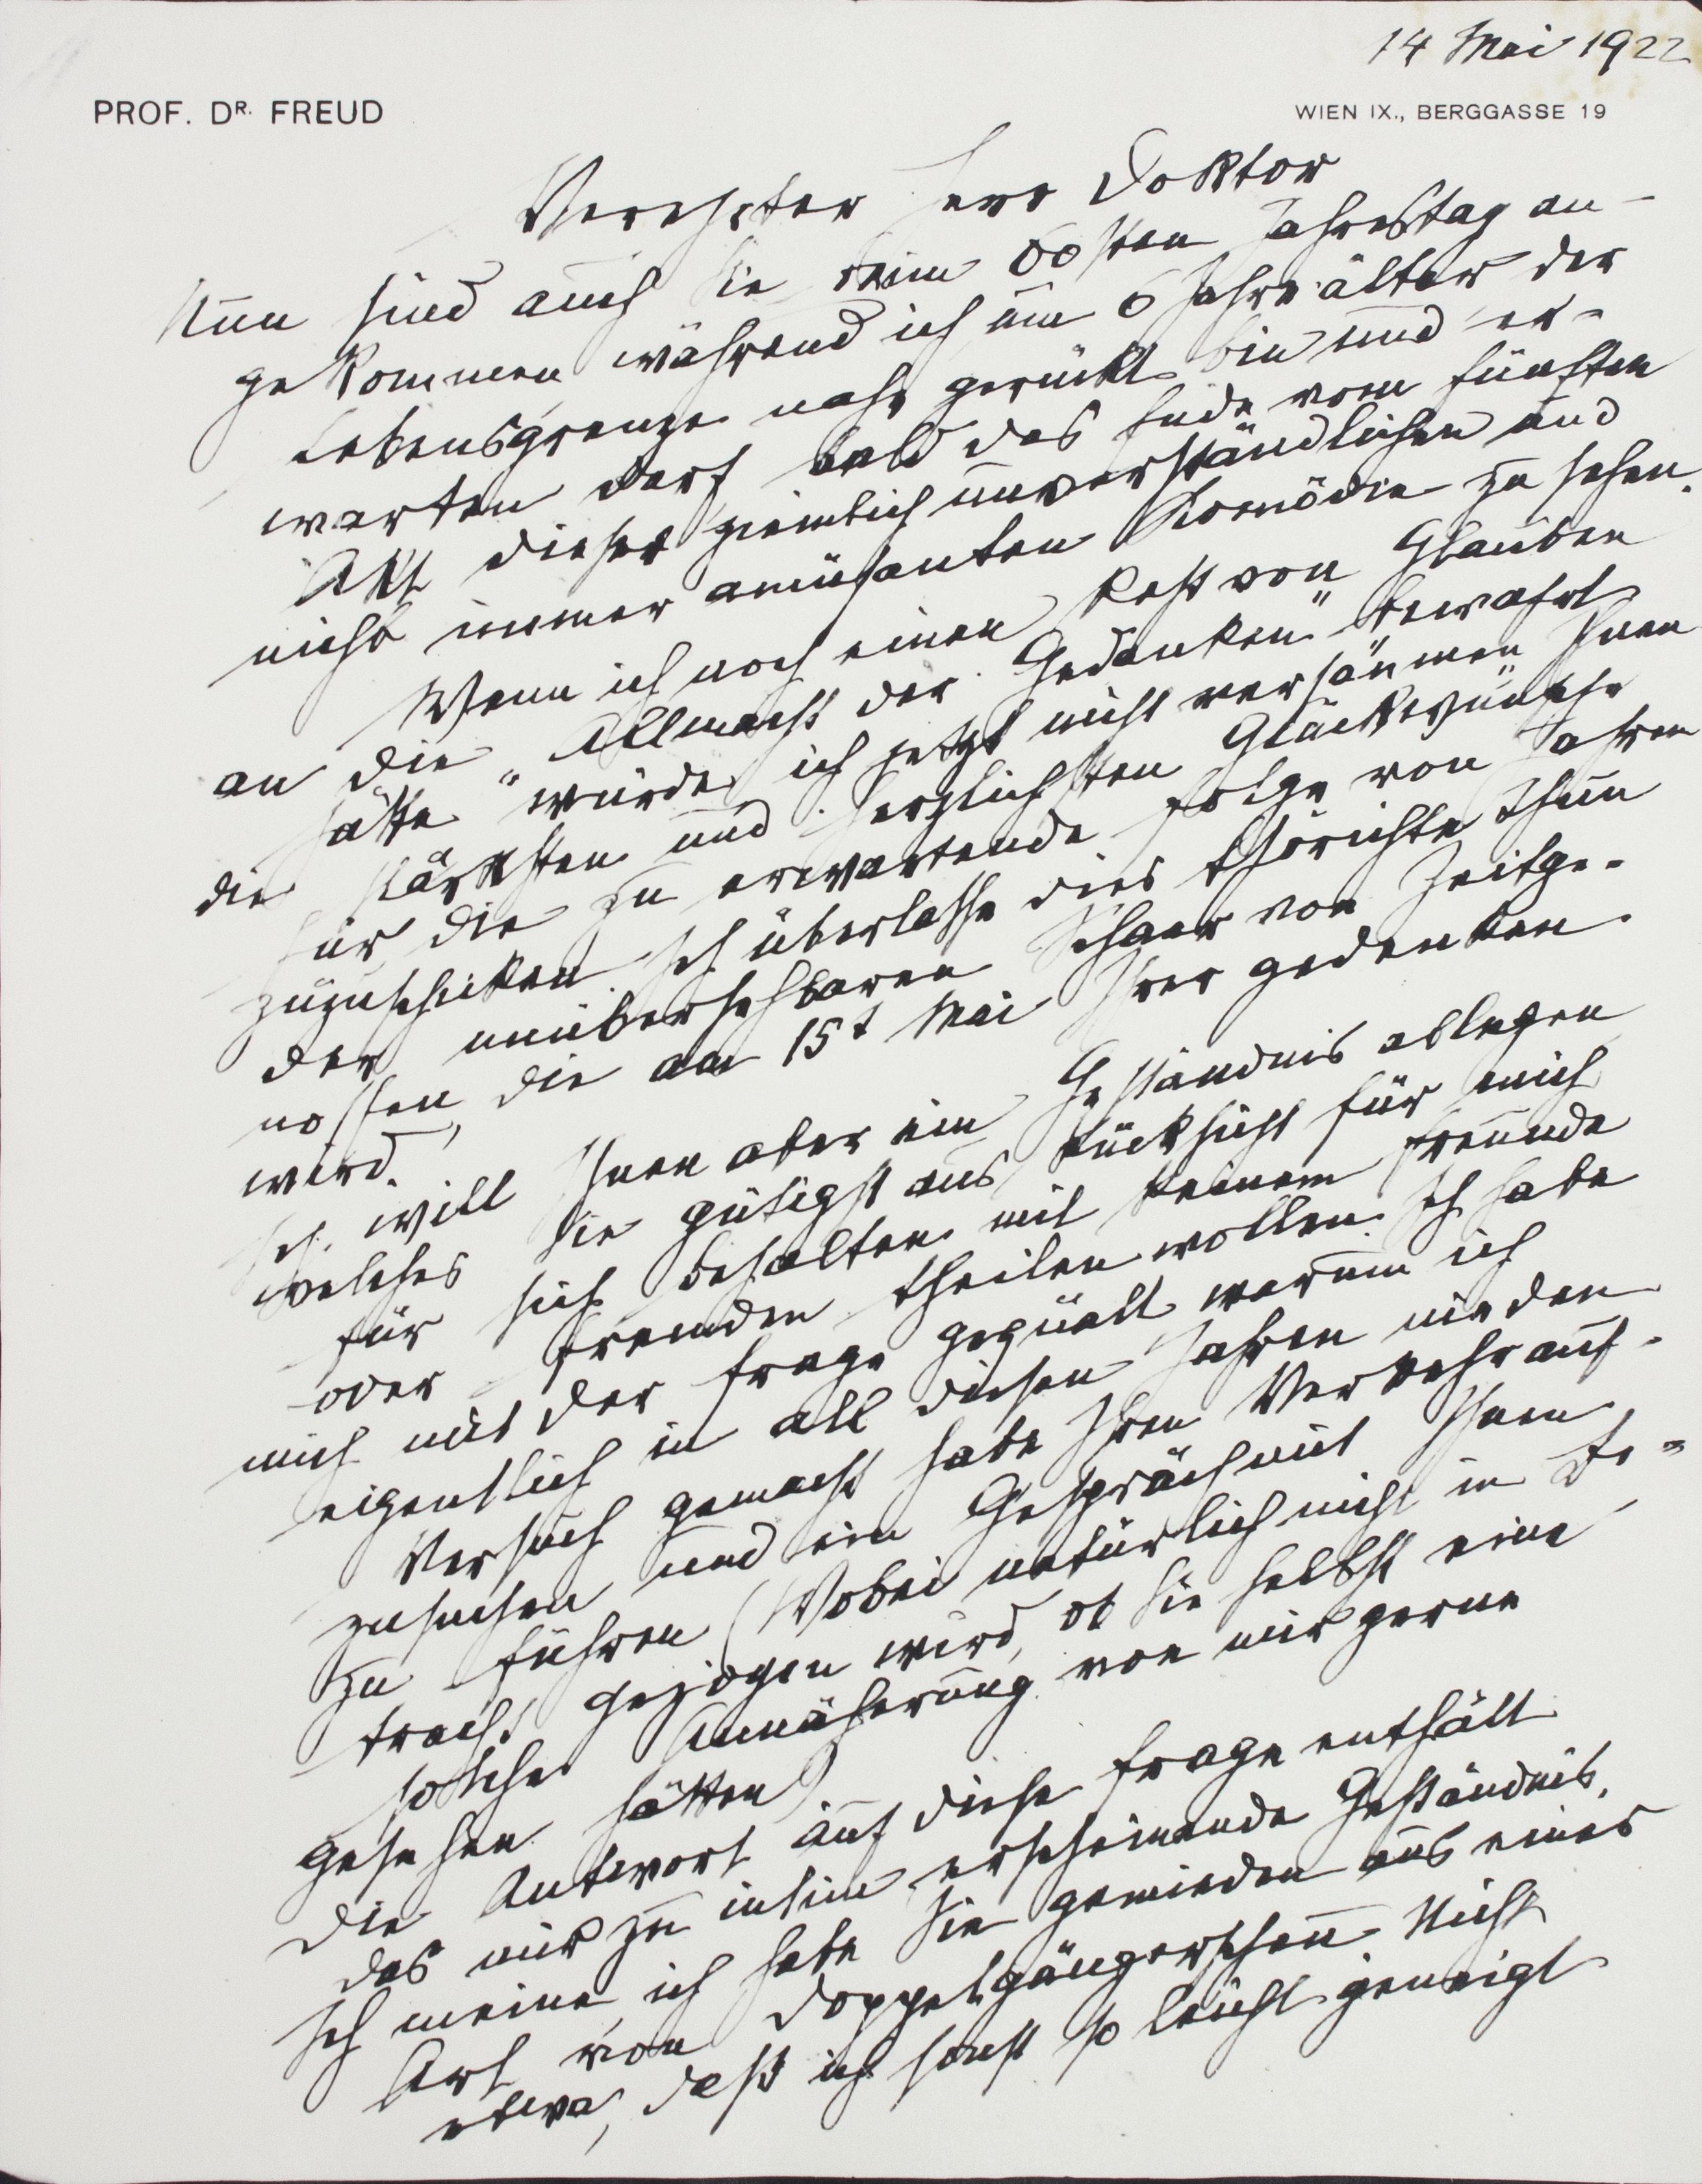 14 Mai 1922
PROF. DR. FREUD
WIEN IX., BERGGASSE 19
Verehrter Herr Doktor
Nun sind auch Sie beim 60sten Jahrestag an-
gekommen während ich um 6 Jahre älter der
Lebensgrenze nahe gerückt bin und er-
warten darf bald das Ende vom fünften
Akt dieser ziemlich unverständlichen und
nicht immer amüsanten Komödie zu sehen.
Wenn ich noch einen Rest von Glauben
an die „Allmacht der Gedanken" bewahrt
hätte würde ich jetzt nicht versäumen Ihnen
die stärksten und herzlichsten Glückwünsche
für die zu erwartende Folge von Jahren
zuzuschicken. Ich überlasse dies thörichte Thun
der unübersehbaren Schaar von Zeitge-
nossen, die am 15t Mai Ihrer gedenken
wird.
Ich will Ihnen aber ein Geständnis ablegen
welches Sie gütigst aus Rücksicht für mich
für sich behalten mit keinem Freunde
oder Fremden theilen wollen. Ich habe
mich mit der Frage gequält warum ich
eigentlich in all diesen Jahren nie den
Versuch gemacht habe Ihren Verkehr auf-
zusuchen und ein Gespräch mit Ihnen
zu führen (Wobei natürlich nicht in Be-
tracht gezogen wird, ob Sie selbst eine
solche Annäherung von mir gerne
gesehen hätten)
Die Antwort auf diese Frage enthält
das mir zu intim erscheinende Geständnis.
Ich meine, ich habe Sie gemieden aus einer
Art von Doppelgängerscheu. Nicht
etwa, daß ich sonst so leicht geneigt